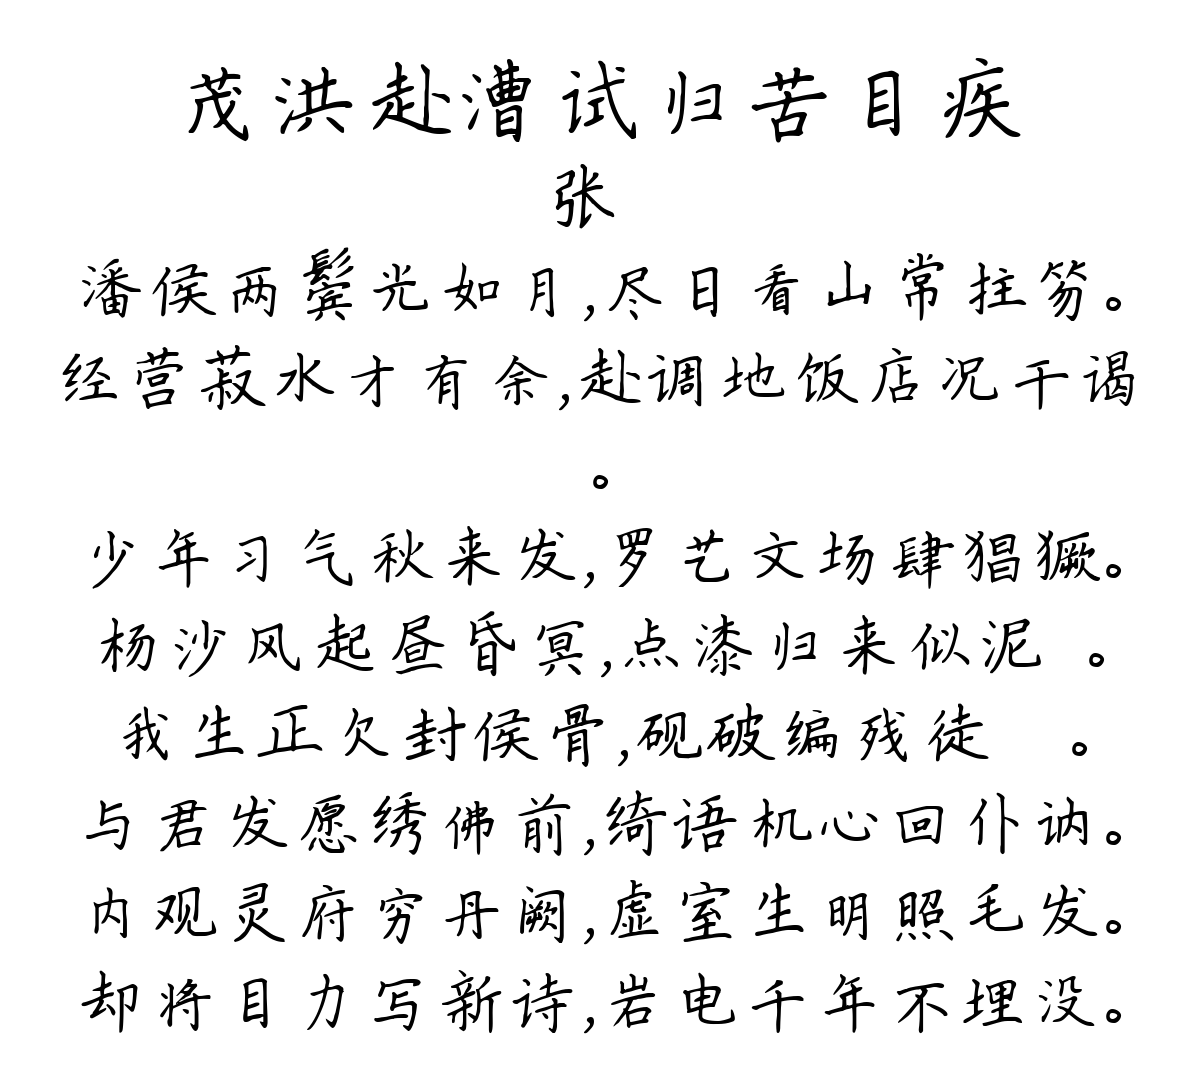 茂洪赴漕试归苦目疾
张
潘侯两鬓光如月,尽日看山常拄笏。
经营菽水才有余,赴调地饭店况干谒
。
少年习气秋来发,罗艺文场肆猖獗。
杨沙风起昼昏冥,点漆归来似泥 。
我生正欠封侯骨,砚破编残徒 。
与君发愿绣佛前,绮语机心回仆讷。
内观灵府穷丹阙,虚室生明照毛发。
却将目力写新诗,岩电千年不埋没。